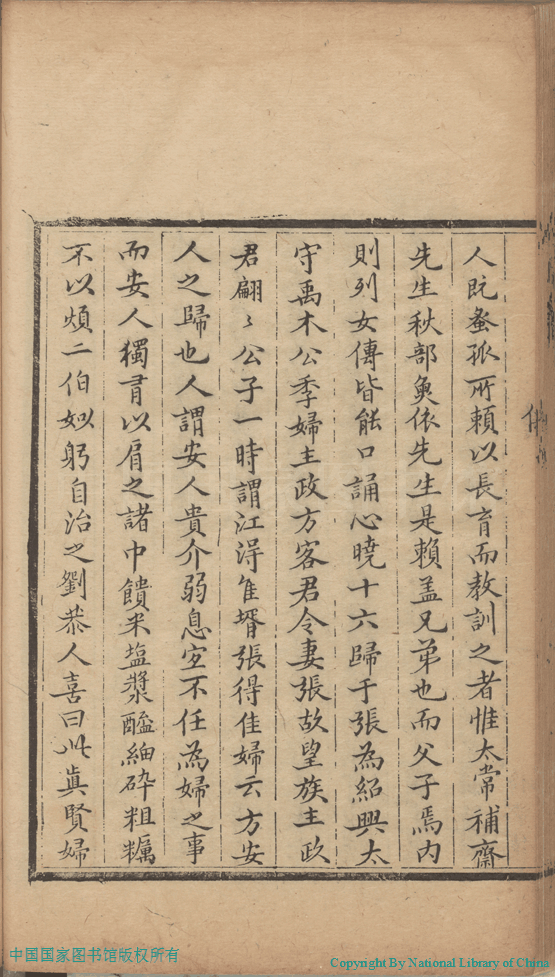 人旣蚤孤所賴以長育而教訓之者惟太常補齋
先生秋部奐依先生是賴盖兄弟也而父子焉内
則列女傳皆能口誦心曉十六歸于張為紹興太
守禹木公季婦主政方客君令妻張故望族主政
君翩〻公子一時謂江淂隹壻張得佳婦云方安
人之歸也人謂安人貴介弱息宜不任為婦之事
而安人獨胥以肩之諸巾饋米塩漿醯細碎粗糲
不以煩二伯姒躬自治之劉恭人喜曰此眞賢婦
中国国家图书馆版权所有
Copyright By National Library of China